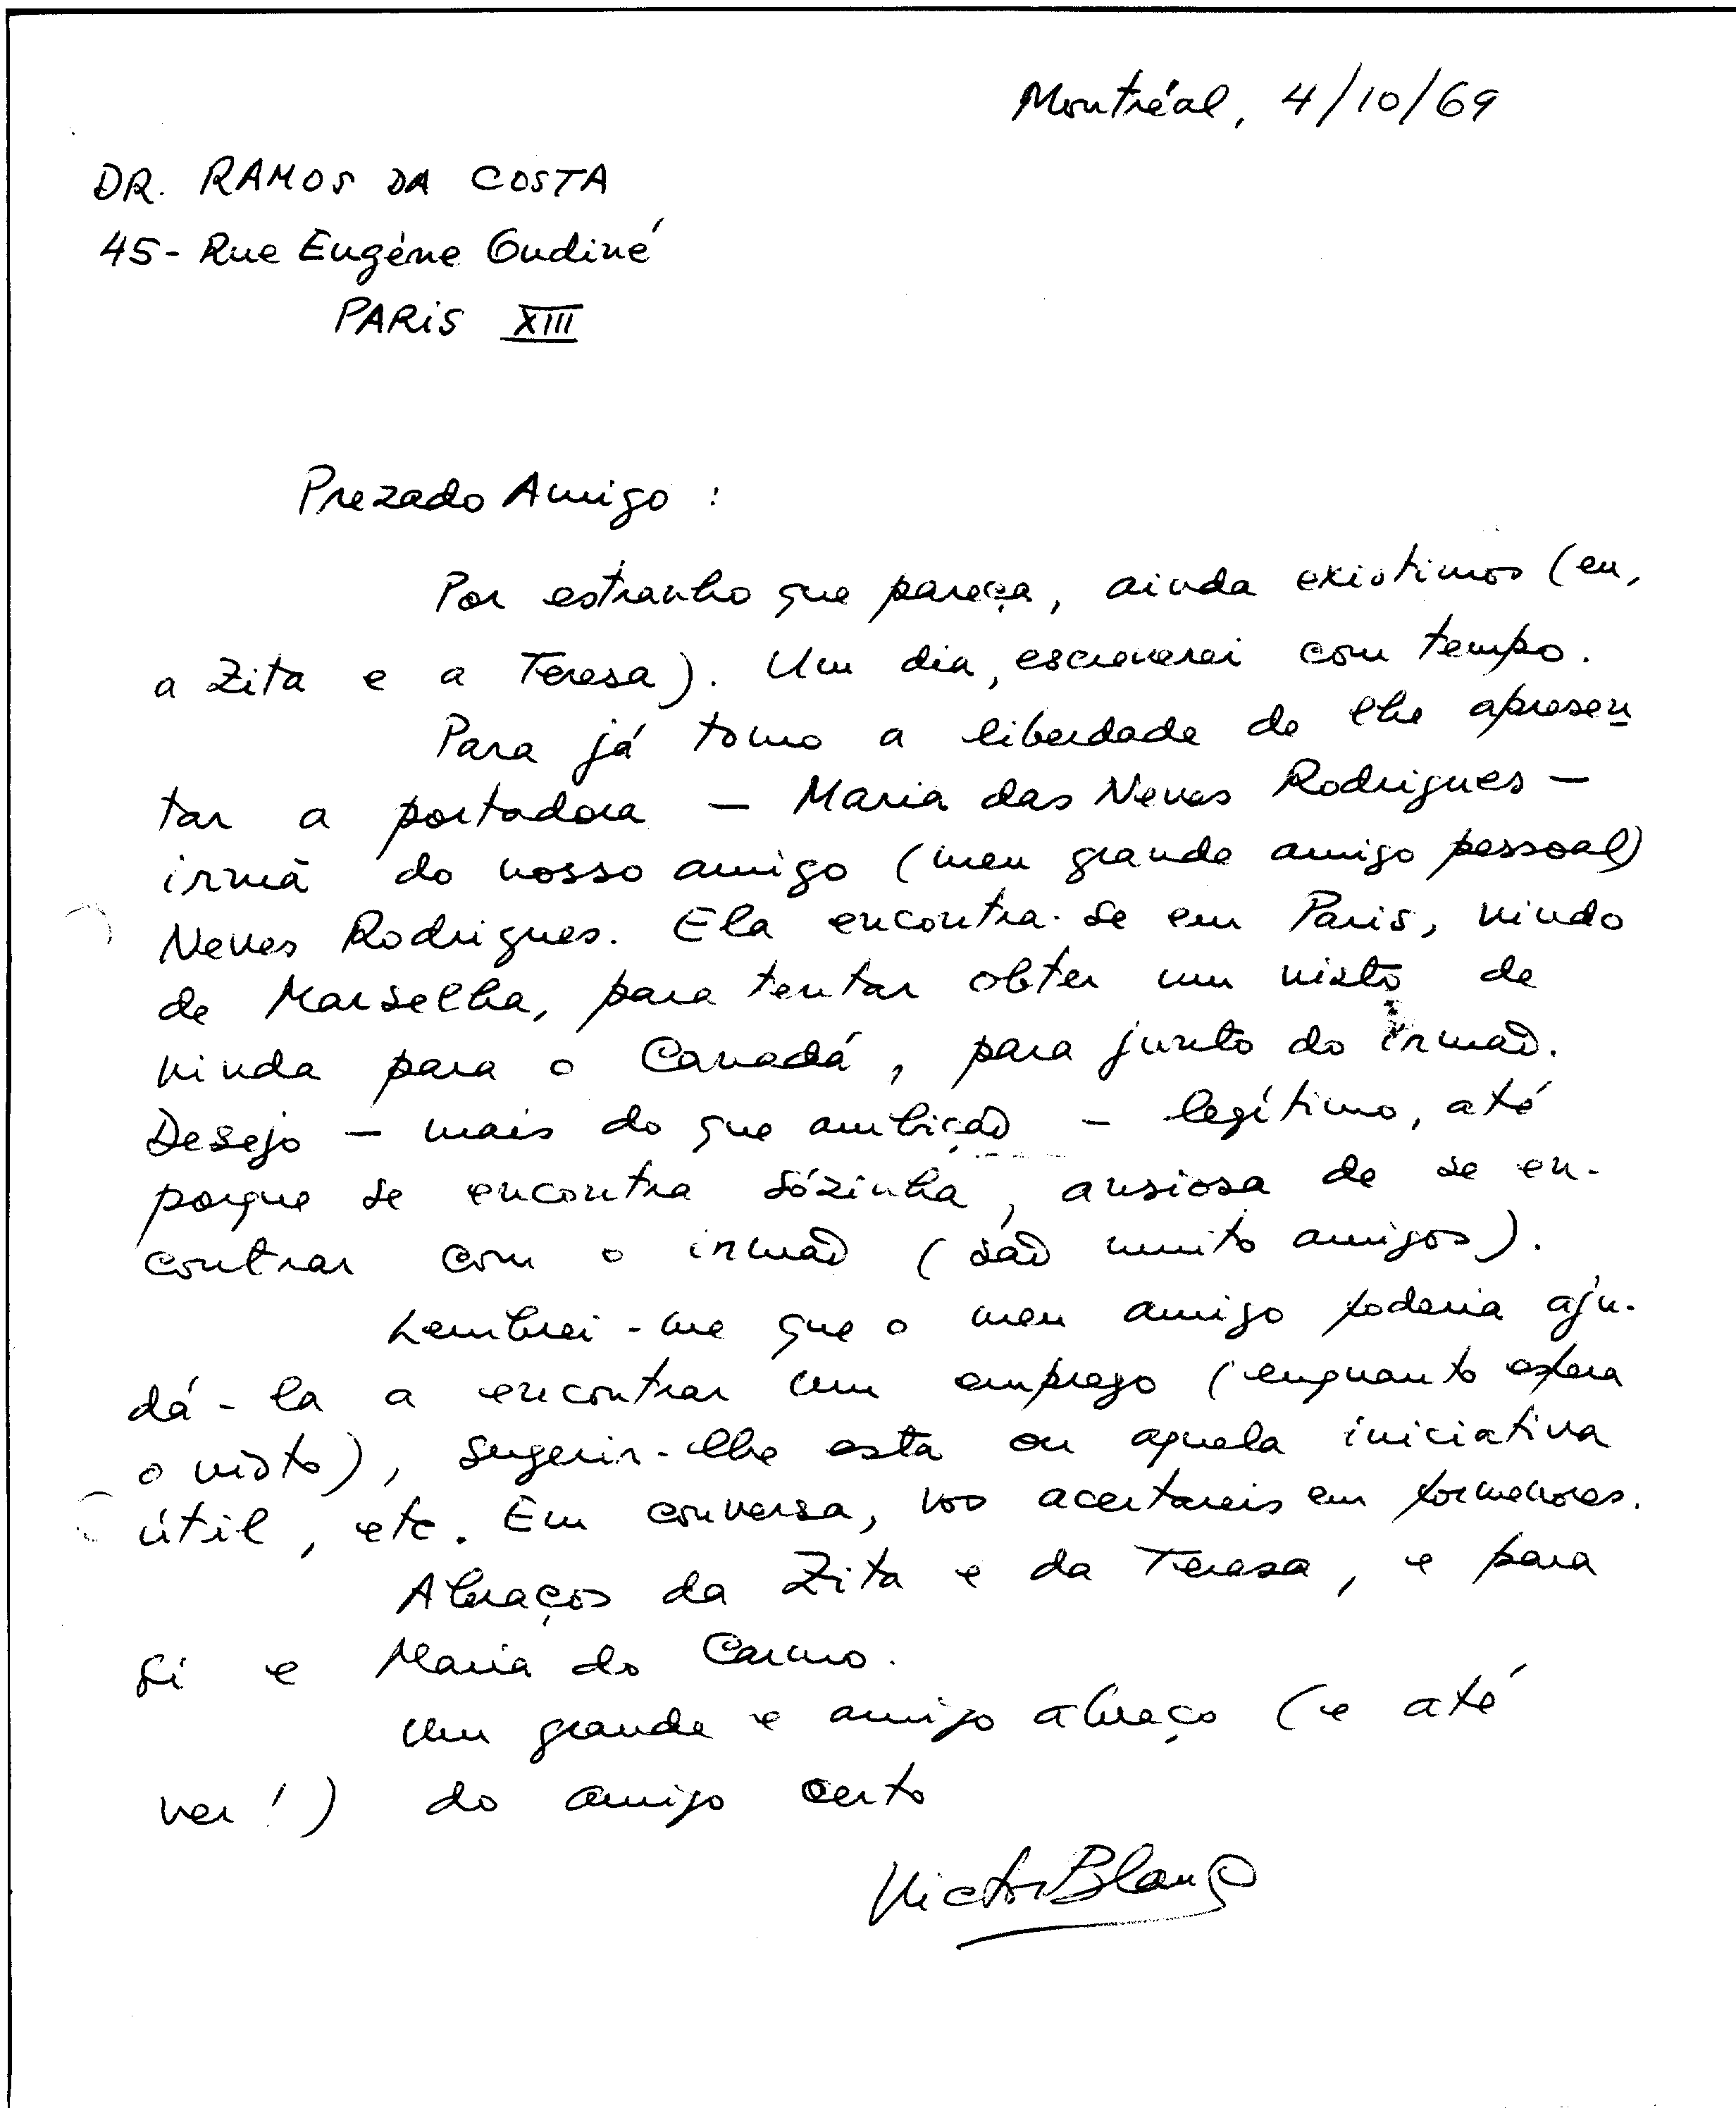 Montréal, 4/10/69
DR. RAMOS DA COSTA
45 - Rue Eugéne Oudiné
PARIS XIII
Prezado Amigo :
Por estranho que pareça, ainda existimos (eu,
a Zita e a Teresa). Um dia, escreverei com tempo.
Para já tomo a liberdade de lhe apresen
tar a portadora — Maria das Neves Rodrigues —
irmã do nosso amigo (meu grande amigo pessoal)
Neves Rodrigues. Ela encontra-se em Paris, vindo
de Marselha, para tentar obter um visto de
vinda para o Canadá, para junto do irmão.
Desejo — mais do que ambição — legítimo, até
porque se encontra sózinha, ansiosa de se en-
contrar com o irmão (são muito amigos).
Lembrei-me que o meu amigo poderia aju-
dá-la a encontrar um emprego (enquanto espera
o visto), sugerir-lhe esta ou aquela iniciativa
útil, etc. Em conversa, vos acertareis em pormenores.
Abraços da Zita e da Teresa, e para
si e Maria do Carmo.
Um grande e amigo abraço (e até
ver!) do amigo certo
Victor Blanco